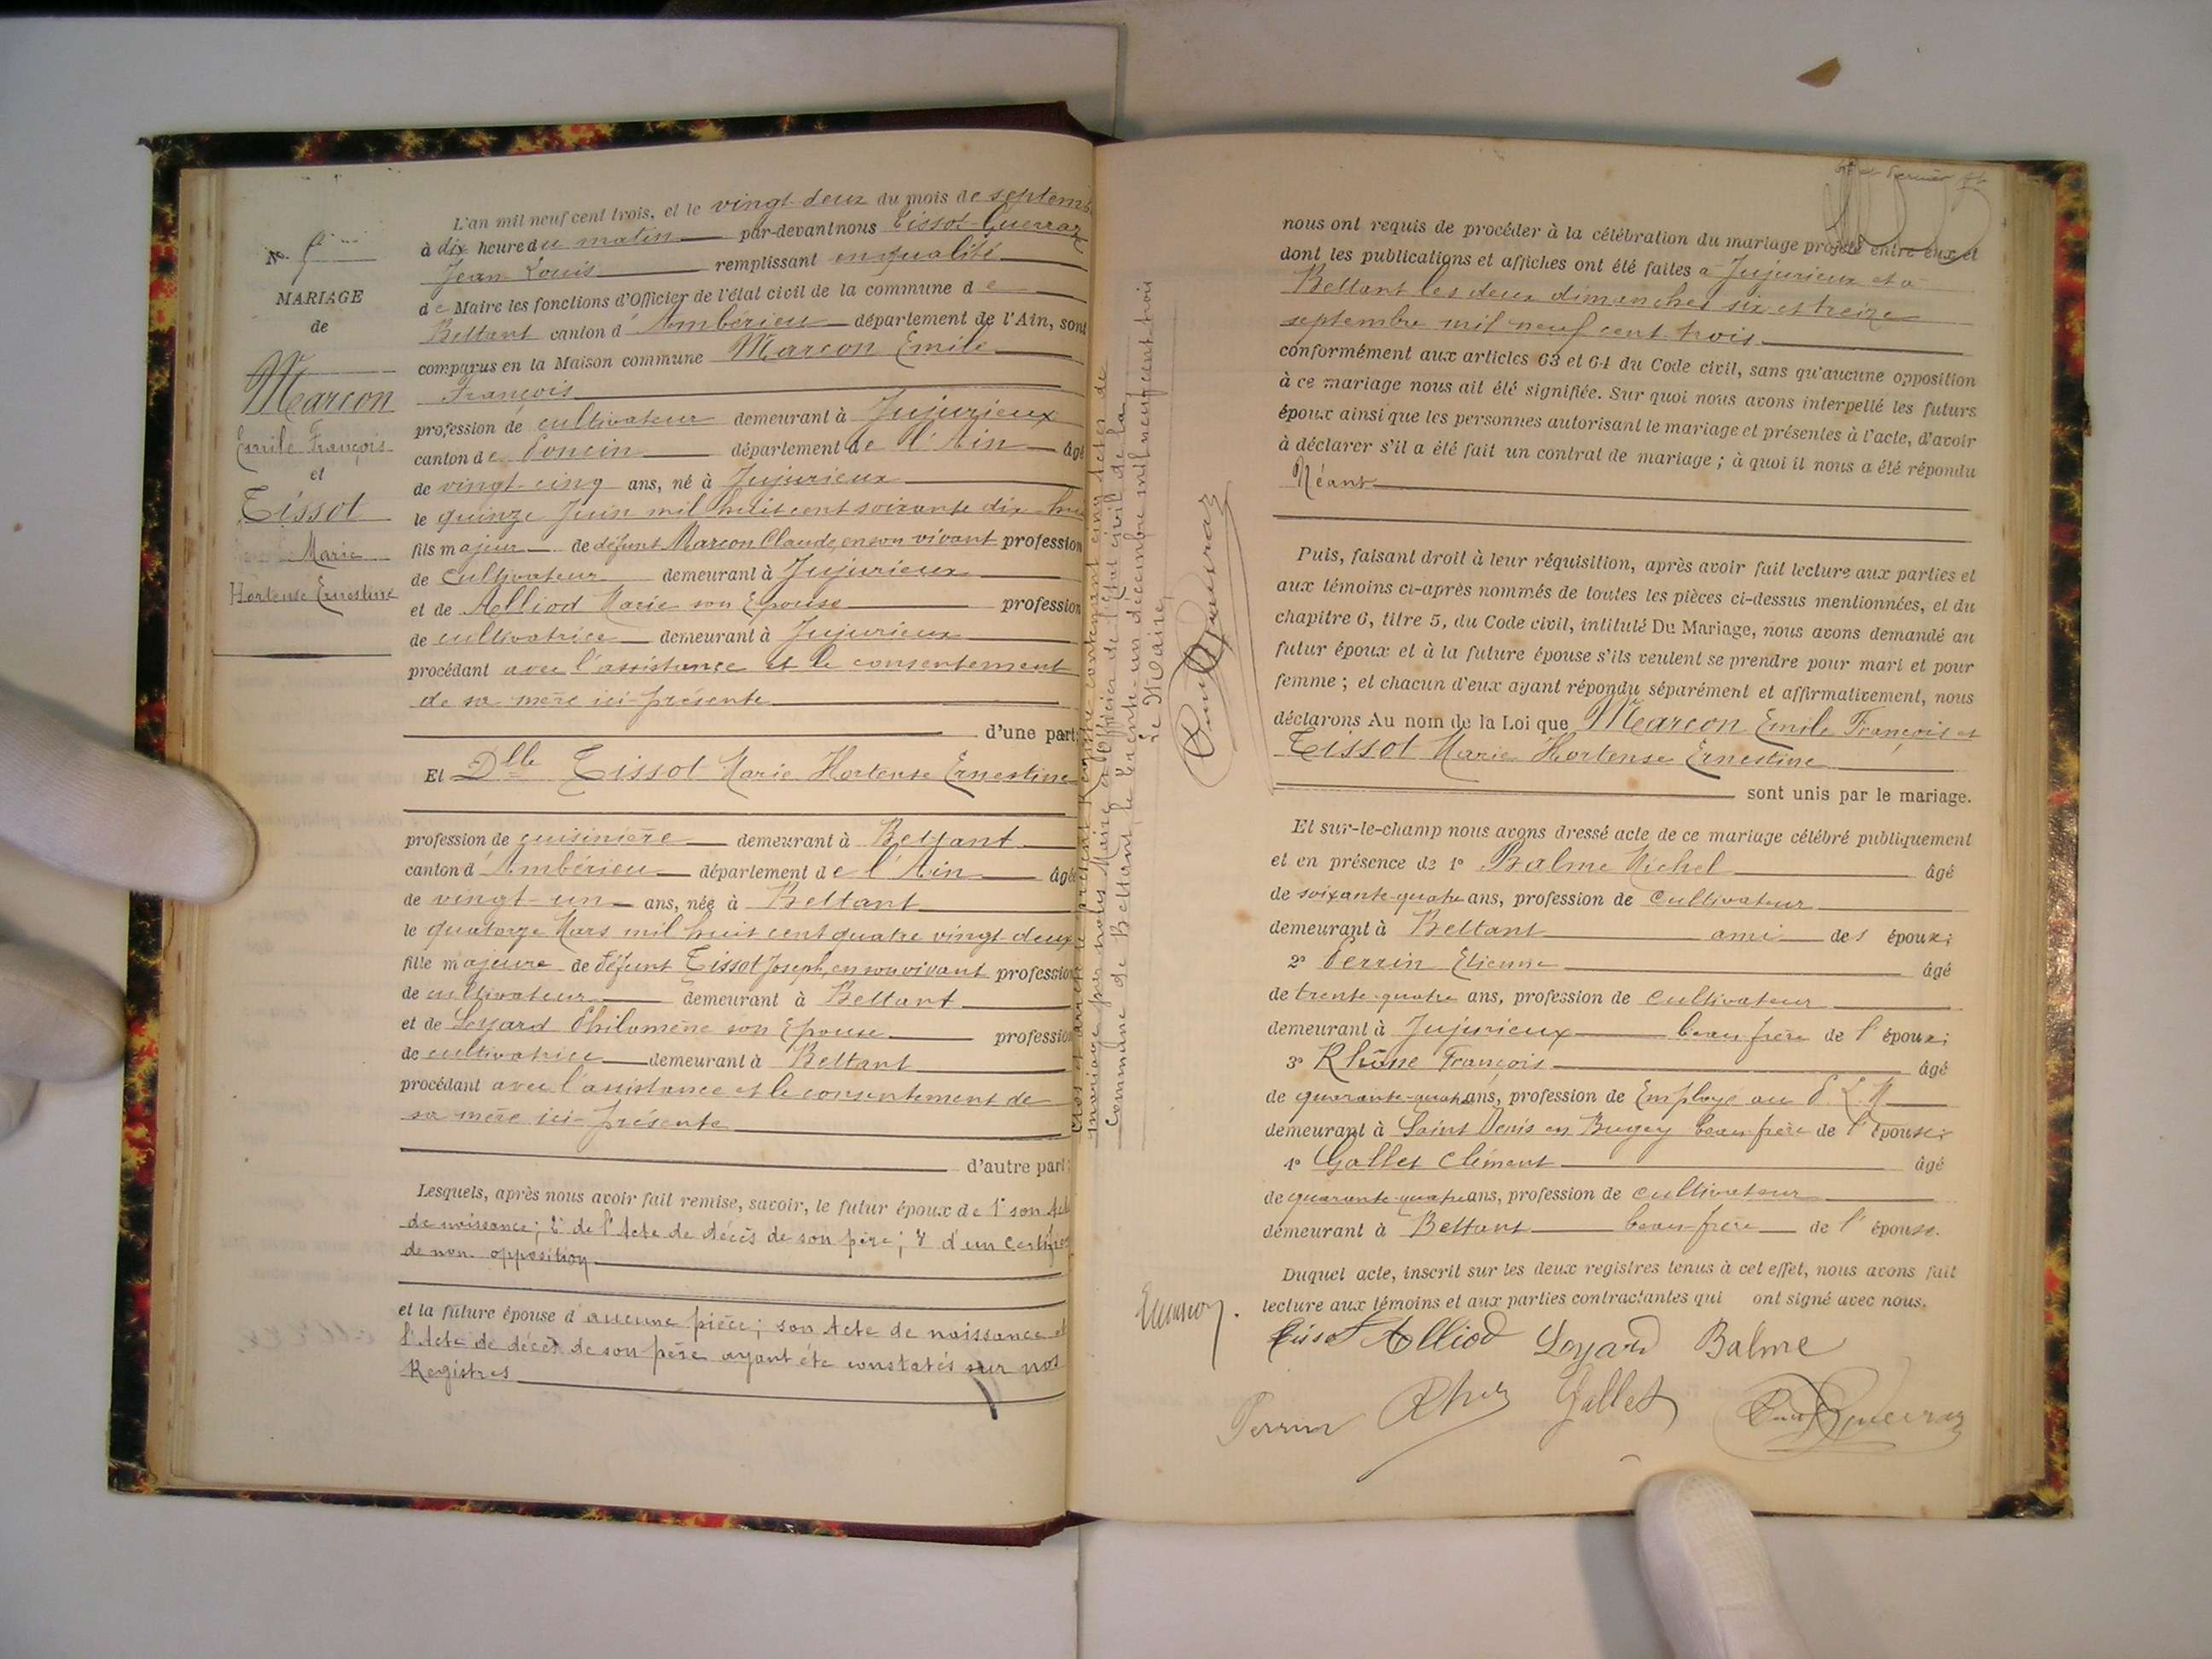 L'an mil neuf cent trois, et le vingt deux du mois de septemb
à dix heure du matin par-devant nous Tissot-Guerraz
Jean Louis remplissant en qualité
de Maire les fonctions d'Officier de l'état civil de la commune de
Bettant canton d'Ambérieu département de l'Ain, sont
comparus en la Maison commune Marcon Emile
François
profession de cultivateur demeurant à Jujurieux
canton de Poncin département de l'Ain âgé
de vingt-cinq ans, né à Jujurieux
le quinze Juin mil huit cent soixante dix-hui
fils majeur de défunt Marcon Claude, en son vivant profession
de cultivateur demeurant à Jujurieux
et de Alliod Marie son Epouse profession
de cultivatrice demeurant à Jujurieux
procédant avec l'assistance et le consentement
de sa mère ici présente
d'une part;
Et Dlle Tissot Marie Hortense Ernestine
profession de cuisinière demeurant à Bettant
canton d'Ambérieu département de l'Ain âgée
de vingt-un ans, née à Bettant
le quatorze Mars mil huit cent quatre vingt deux
fille majeure de défunt Tissot Joseph, en son vivant profession
de cultivateur demeurant à Bettant
et de Loyard Philomène son Epouse profession
de cultivatrice demeurant à Bettant
procédant avec l'assistance et le consentement de
sa mère ici-présente
d'autre part;
Lesquels, après nous avoir fait remise, savoir, le futur époux de 1° son Acte
de naissance; 2° de l'Acte de décès de son père; 3° d'un certificat
de non opposition
et la future épouse d'aucune pièce; son Acte de naissance et
l'Acte de décès de son père ayant été constatés sur nos
Registres
No
MARIAGE
de
Marcon
Emile François
et
Tissot
Marie
Hortense Ernestine
Clos et arrêté le présent Registre contenant cinq actes de
mariage par nous Maire et Officier de l'Etat civil de la
Commune de Bettant, le trente-un décembre mil neuf cent trois
Le Maire,
nous ont requis de procéder à la célébration du mariage projeté entre eux et
dont les publications et affiches ont été faites à Jujurieux et à
Bettant les deux dimanches six et treize
septembre mil neuf cent trois
conformément aux articles 63 et 64 du Code civil, sans qu'aucune opposition
à ce mariage nous ait été signifiée. Sur quoi nous avons interpellé les futurs
époux ainsi que les personnes autorisant le mariage et présentes à l'acte, d'avoir
à déclarer s'il a été fait un contrat de mariage; à quoi il nous a été répondu
Néant
Puis, faisant droit à leur réquisition, après avoir fait lecture aux parties et
aux témoins ci-après nommés de toutes les pièces ci-dessus mentionnées, et du
chapitre 6, titre 5, du Code civil, intitulé Du Mariage, nous avons demandé au
futur époux et à la future épouse s'ils veulent se prendre pour mari et pour
femme; et chacun d'eux ayant répondu séparément et affirmativement, nous
déclarons Au nom de la Loi que Marcon Emile François et
Tissot Marie Hortense Ernestine
sont unis par le mariage.
Et sur-le-champ nous avons dressé acte de ce mariage célébré publiquement
et en présence de 1° Balme Michel âgé
de soixante-quatre ans, profession de cultivateur
demeurant à Bettant ami des époux;
2° Perrin Etienne âgé
de trente-quatre ans, profession de cultivateur
demeurant à Jujurieux beau frère de l'époux;
3° François âgé
de quarante-quatre ans, profession de Employé au P. L. M
demeurant à Saint Denis en Bugey beau frère de l'épouse;
4° Gallet Clément âgé
de quarante-quatre ans, profession de cultivateur
demeurant à Bettant beau-frère de l'épouse.
Duquel acte, inscrit sur les deux registres tenus à cet effet, nous avons fait
lecture aux témoins et aux parties contractantes qui ont signé avec nous.
Tissot Alliod Loyard Balme
Perrin Gallet